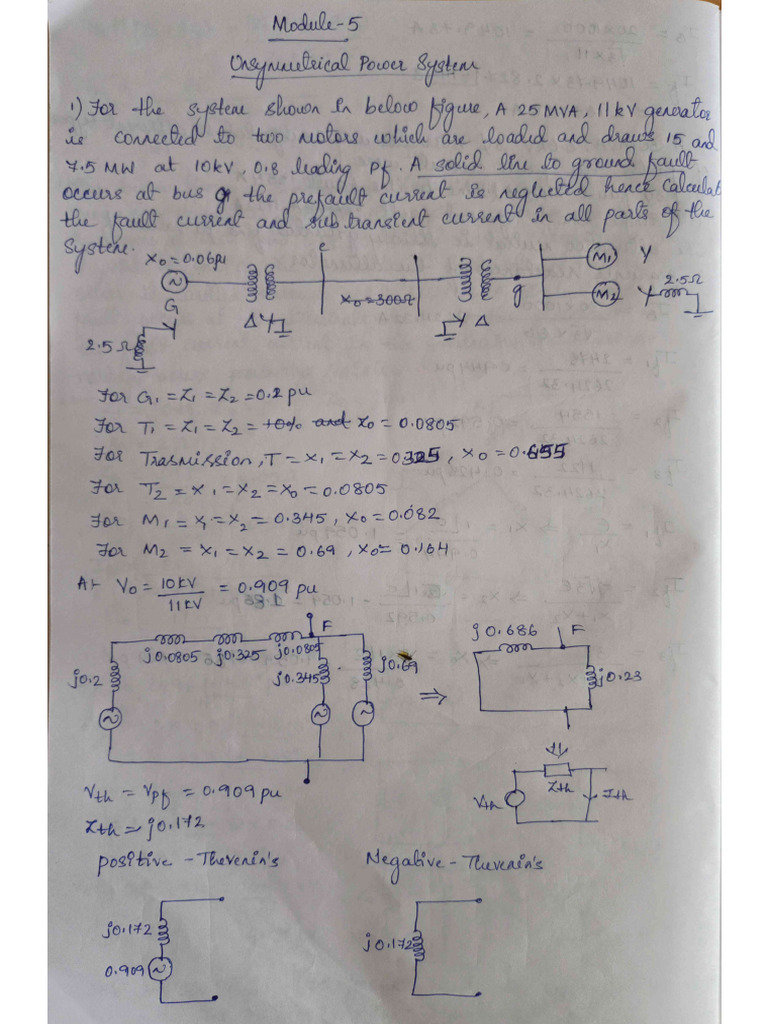 Module-5
Unsymmetrical Power System
1) For the system shown in below figure, A 25 MVA, 11 kV generator
is connected to two motors which are loaded and draws 15 and
7.5 MW at 10kV, 0.8 leading pf. A solid line to ground fault
occurs at bus g the prefault current is neglected hence calculat
the fault current and subtransient current in all parts of the
System.
X₀ = 0.06pu
e
M₁ Y
X₀ = 300Ω
G
g
M₂ Y 2.5Ω
Δ Y
Y Δ
2.5Ω
For G₁ = Z₁ = Z₂ = 0.2 pu
For T₁ = Z₁ = Z₂ = X₀ = 0.0805
For Trasmission, T = X₁ = X₂ = 0.325, X₀ = 0.655
For T₂ = X₁ = X₂ = X₀ = 0.0805
For M₁ = X₁ = X₂ = 0.345, X₀ = 0.082
For M₂ = X₁ = X₂ = 0.69, X₀ = 0.164
At V₀ = 10KV / 11KV = 0.909 pu
F
j0.0805 j0.325 j0.0805
j0.2
j0.345
j0.69
⇒
j0.686 F
j0.23
Vth
Zth
Ith
Vth = Vpf = 0.909 pu
Zth = j0.172
positive - Thevenin's
Negative - Thevenin's
j0.172
0.909
j0.172